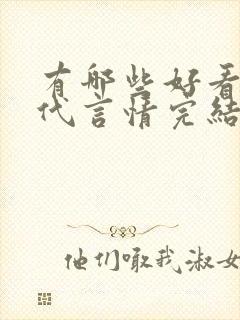 有哪些好看
代言情完结
他们瞰我淑女